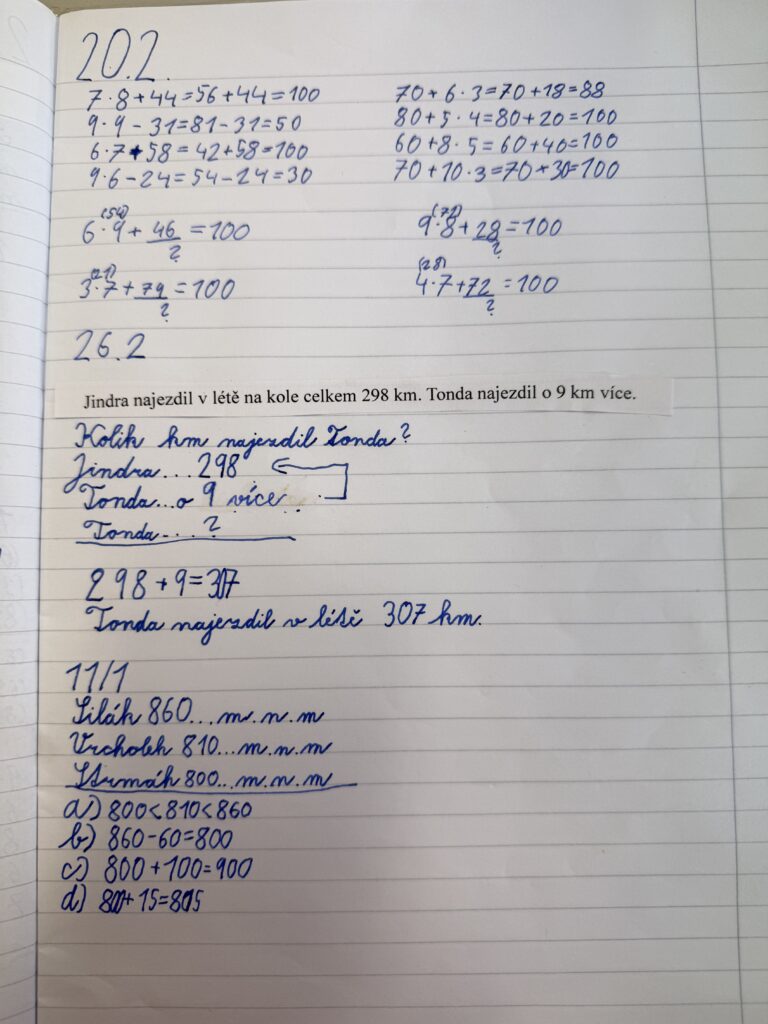 20.2.
7·8+44=56+44=100
9·9-31=81-31=50
6·7+58=42+58=100
9·6-24=54-24=30
70+6·3=70+18=88
80+5·4=80+20=100
60+8·5=60+40=100
70+10·3=70+30=100
(54)
6·9+46=100
?
(72)
9·8+28=100
?
(21)
3·7+79=100
?
(28)
4·7+72=100
?
26.2
Jindra najezdil v létě na kole celkem 298 km. Tonda najezdil o 9 km více.
Kolik km najezdil Tonda?
Jindra...298
Tonda...o 9 více
Tonda...?
298+9=307
Tonda najezdil v létě 307 km.
11/1
Silák 860...m.n.m
Vrcholek 810...m.n.m
Strmák 800...m.n.m
a) 800<810<860
b) 860-60=800
c) 800+100=900
d) 800+15=815